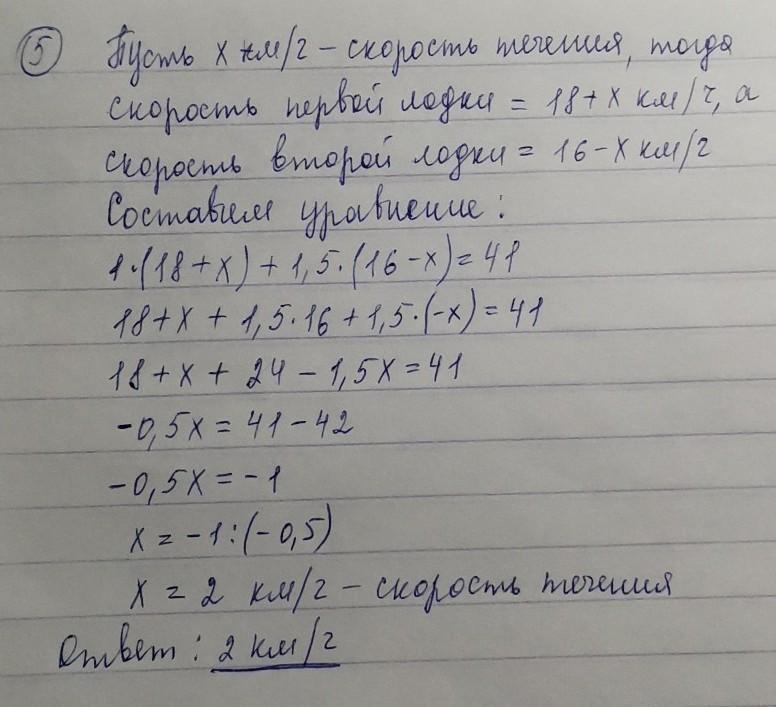 ⑤ Пусть х км/ч – скорость течения, тогда
скорость первой лодки = 18 + х км/ч, а
скорость второй лодки = 16 – х км/ч
Составим уравнение:
1·(18 + х) + 1,5·(16 – х) = 41
18 + х + 1,5·16 + 1,5·(–х) = 41
18 + х + 24 – 1,5х = 41
–0,5х = 41 – 42
–0,5х = –1
х = –1 : (–0,5)
х = 2 км/ч – скорость течения
Ответ: 2 км/ч